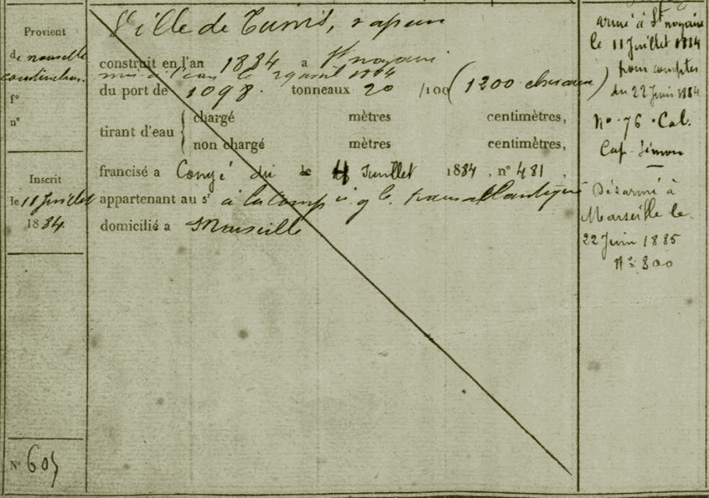 Provient
de nouvelle
construction
f°
n°
Inscrit
le 11 Juillet
1884.
N° 605
Ville de Tunis, vapeur
construit en l'an 1884 a St nazaire
mis à l'eau le 29 avril 1884
du port de 1098. tonneaux 20 /100 (1200 chevaux)
tirant d'eau { chargé mètres centimètres,
non chargé mètres centimètres,
francisé a Congé du 4 Juillet 1884, n° 481,
appartenant au sr à la comp ie gle transatlantique
domicilié a Marseille
armé à St nazaire
le 11 Juillet 1884
pour compter
du 22 Juin 1884
N° 76 Cal.
Cap. Simon
Désarmé à
Marseille le
22 Juin 1885
N° 800